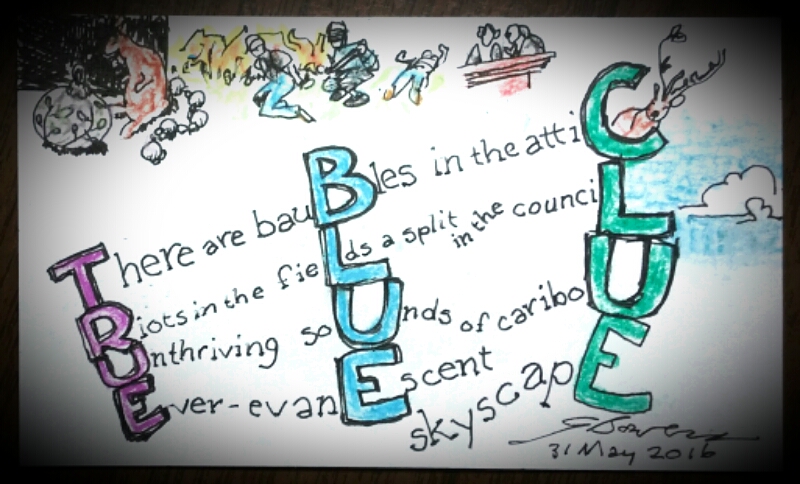 There are bauBles in the attiC
Riots in the fieLds a split in the counciL
Unthriving soUnds of cariboU
Ever-evanEscent skyscapE
31 May 2016